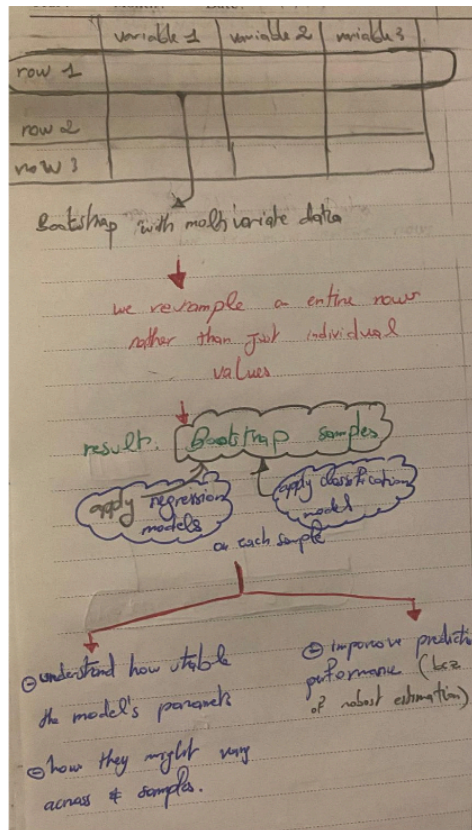 variable 1 variable 2 variable 3
row 1
row 2
row 3
Bootstrap with multivariate data
we resample a entire rows
rather than just individual
values
result. Bootstrap samples
apply regression
models
apply classification
model
on each sample
⊖ understand how stable
the model's paramets
⊖ how they might vary
across ≠ samples.
⊖ improve predicti
performance (bcz
of robust estimation)